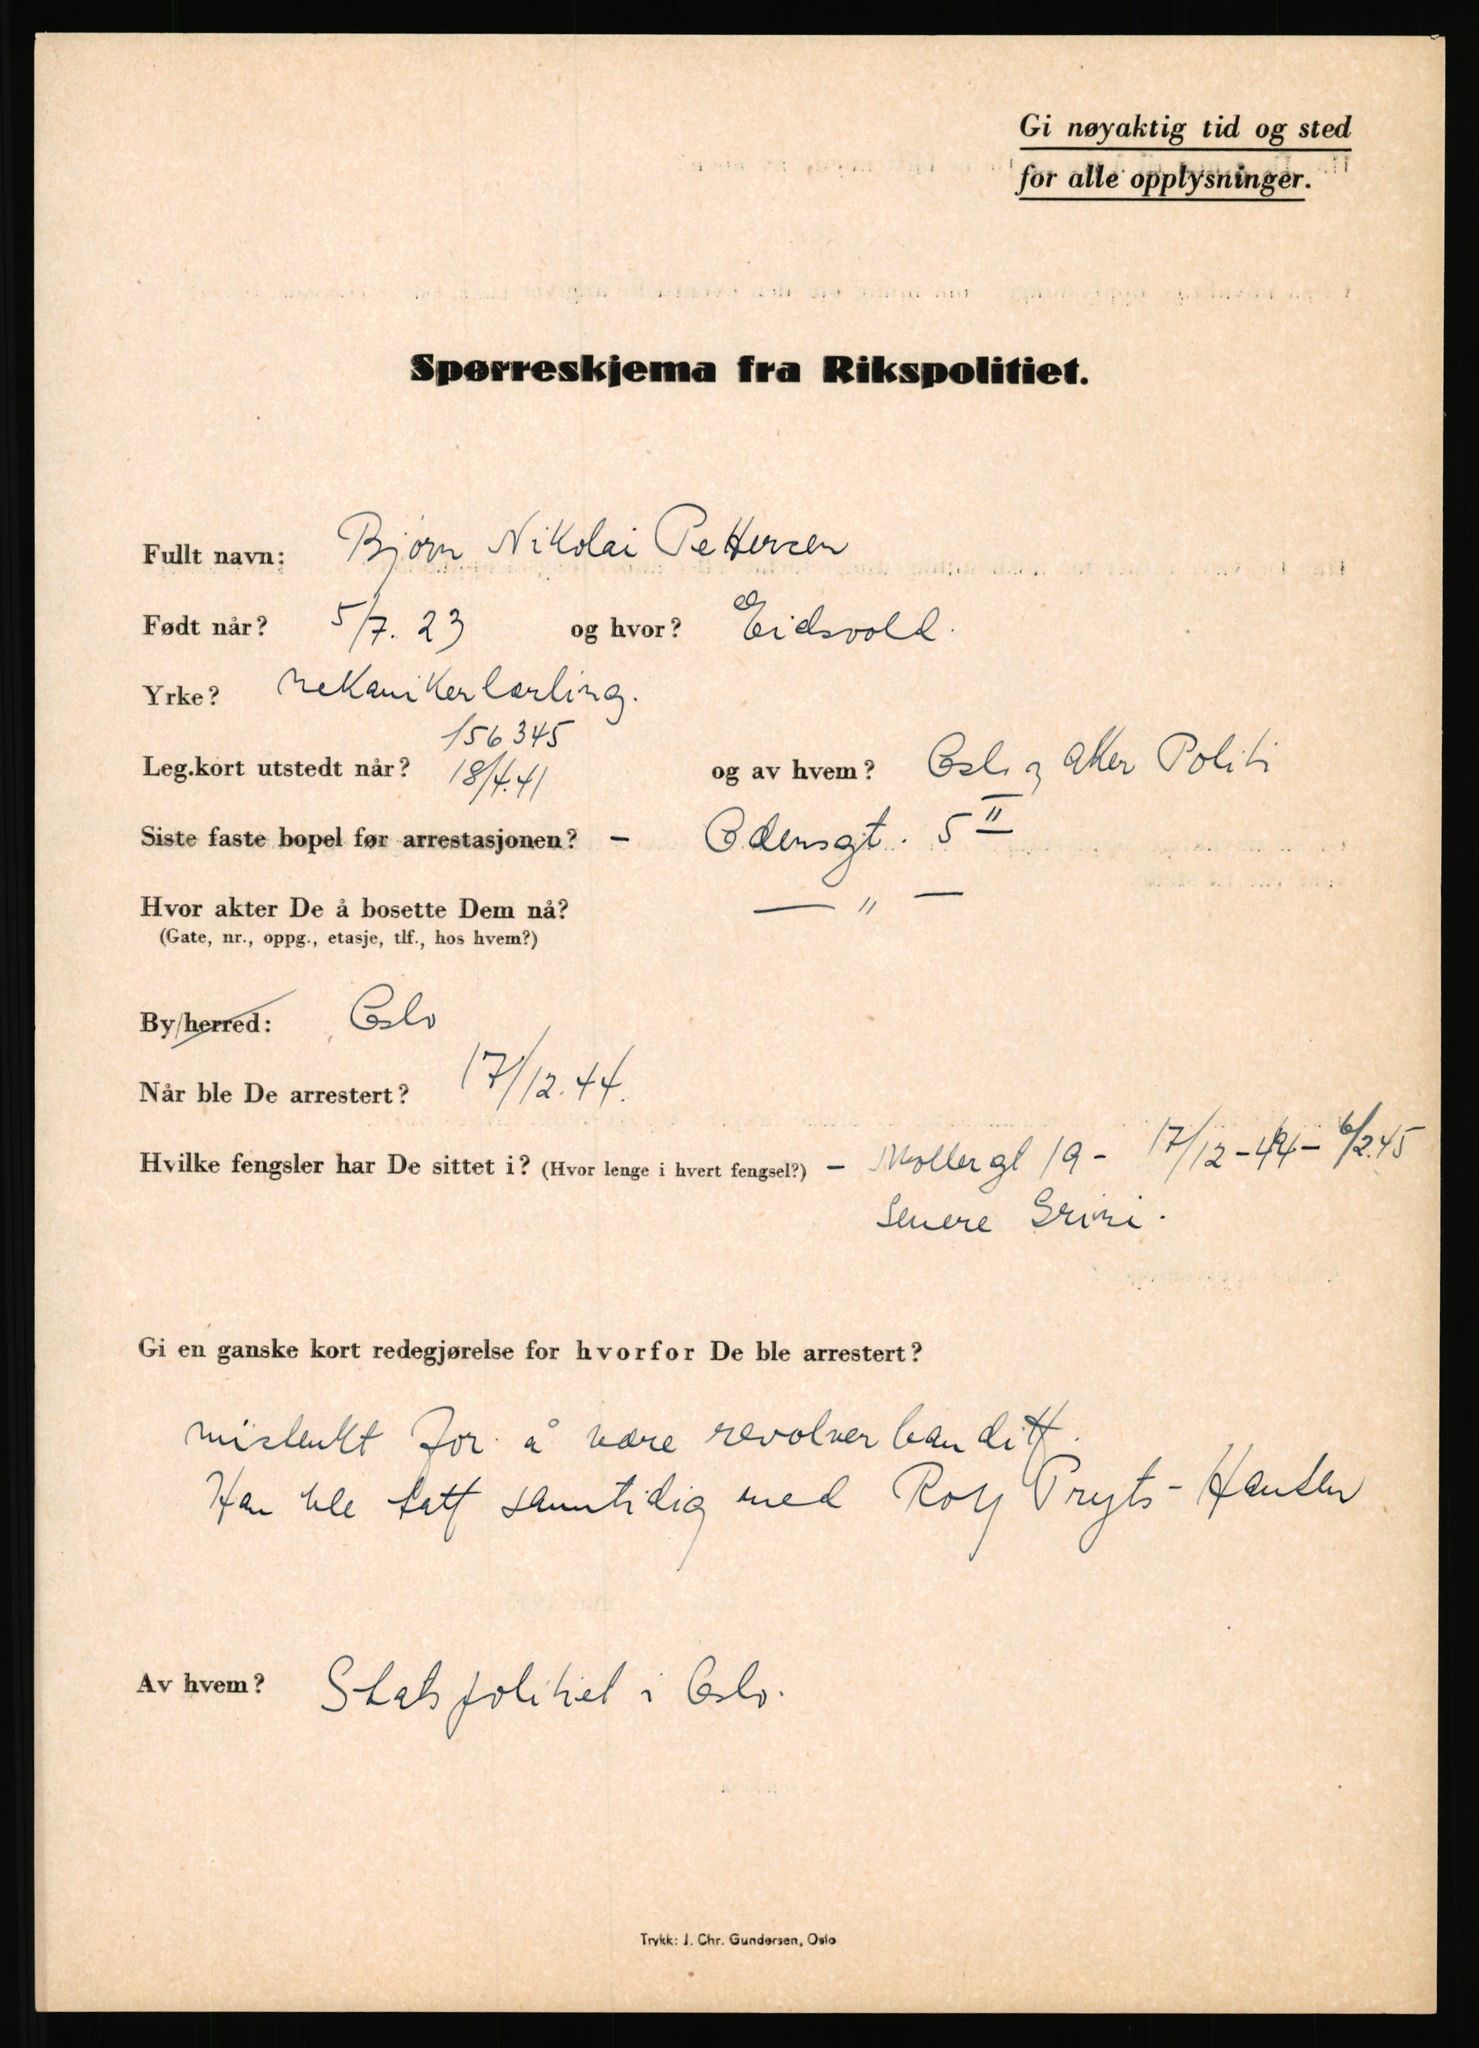 Gi nøyaktig tid og sted
for alle opplysninger.
Spørreskjema fra Rikspolitiet.
Fullt navn: Bjørn Nikolai Pettersen
Født når? 5/7. 23 og hvor? Eidsvold.
Yrke? mekanikerlærling.
156345
Leg.kort utstedt når? 18/4.41 og av hvem? Oslo og Aker Politi
Siste faste bopel før arrestasjonen? — Odensgt. 5 II
Hvor akter De å bosette Dem nå? — " —
(Gate, nr., oppg., etasje, tlf., hos hvem?)
By/herred: Oslo
Når ble De arrestert? 17/12.44.
Hvilke fengsler har De sittet i? (Hvor lenge i hvert fengsel?) — Møllergt 19 - 17/12-44- 6/2.45
Senere Grini.
Gi en ganske kort redegjørelse for hvorfor De ble arrestert?
mistenkt for å være revolverbanditt.
Han ble tatt samtidig med Rolf Pryts-Hansen
Av hvem? Statspolitiet i Oslo.
Trykk: J. Chr. Gundersen, Oslo